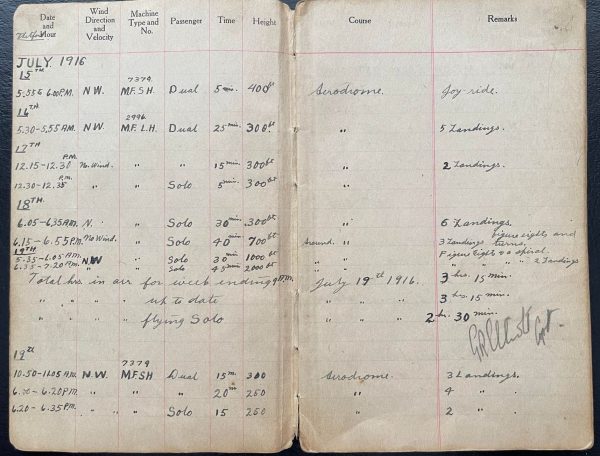 Date and Hour Wind Direction and Velocity Machine Type and No. Passenger Time Height Course Remarks
JULY. 1916
15TH
7379
5.55 & 6.00 P.M. N.W. M.F. S.H. Dual 5 min. 400ft Aerodrome. Joy-ride.
16TH
2996
5.30-5.55 A.M. N.W. M.F. L.H. Dual 25 min. 300ft " 5 Landings.
17TH
12.15-12.30 P.M. No Wind. " " 15 min. 300ft " 2 Landings.
12.30-12.35 P.M. " " Solo 5 min. 300ft "
18TH
6.05-6.35 A.M. N. " Solo 30 min. 300ft " 6 Landings.
6.15-6.55 P.M. No Wind " Solo 40 min 700ft Around " 3 Landings figure eights and turns.
19TH
5.35-6.05 A.M. N.W " Solo 30 min 1000ft " Figure Eights & a spiral.
6.35-7.20 P.M. " " Solo 45 min 2000ft " " " " 2 Landings
Total hrs. in air for week ending 9 P.M. July 19th 1916. 3 hrs. 15 min.
" " " " up to date " " " 3 hrs. 15 min.
" " " " flying Solo " " " 2 hrs. 30 min.
19th
7379
10.50-11.05 A.M. N.W. M.F.S.H. Dual 15m. 300 Aerodrome. 3 Landings.
6.00-6.20 P.M. " " " 20m 250 " 4 "
6.20-6.35 P.M. " " Solo 15 250 " 2 "